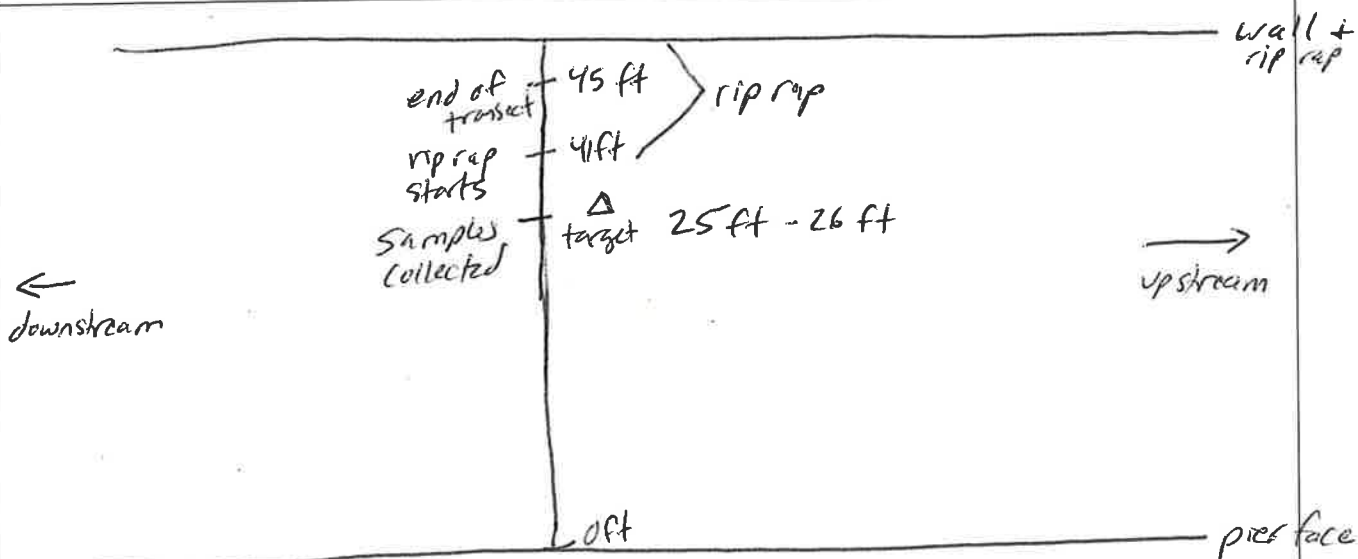 wall +
rip rap
end of
transect
45 ft
rip rap
rip rap
starts
41ft
samples
collected
Δ
target 25ft - 26 ft
downstream
upstream
0ft
pier face